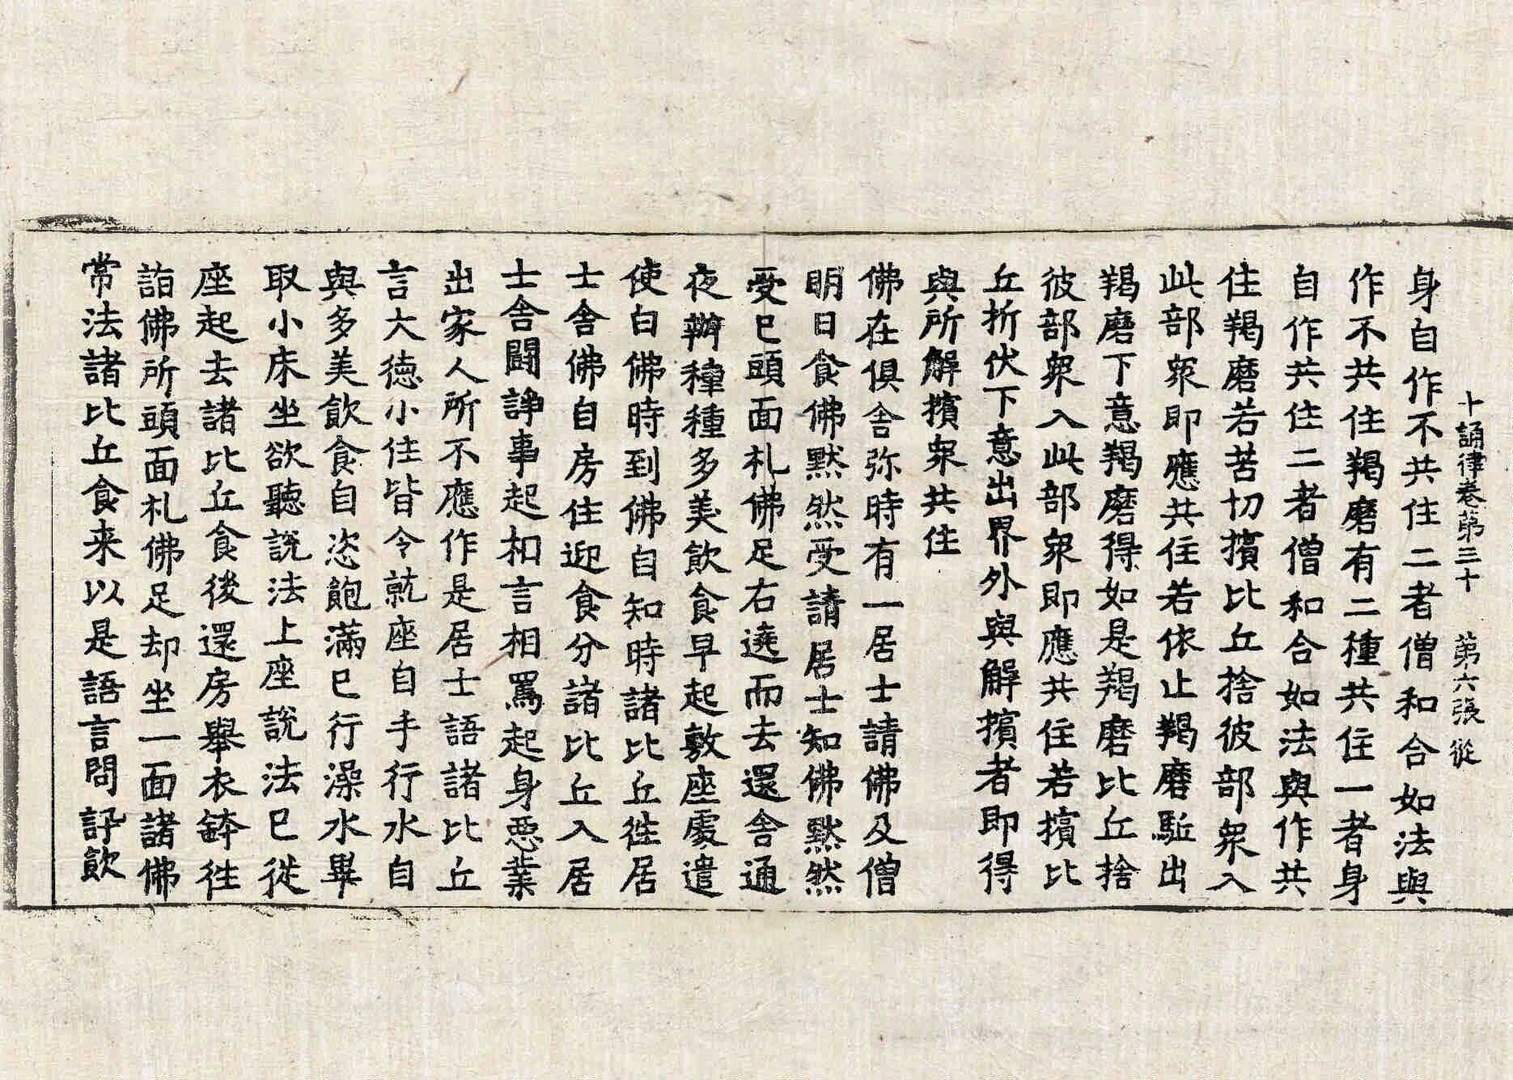 十誦律卷第三十　第六張　從
身自作不共住二者僧和合如法與
作不共住羯磨有二種共住一者身
自作共住二者僧和合如法與作共
住羯磨若苦切擯比丘捨彼部衆入
此部衆即應共住若依止羯磨駈出
羯磨下意羯磨得如是羯磨比丘捨
彼部衆入此部衆即應共住若擯比
丘折伏下意出界外與解擯者即得
與所解擯衆共住
佛在俱舍弥時有一居士請佛及僧
明日食佛黙然受請居士知佛黙然
受已頭面礼佛足右遶而去還舍通
夜辦種種多美飲食早起敷座處遣
使白佛時到佛自知時諸比丘徃居
士舍佛自房住迎食分諸比丘入居
士舍闘諍事起相言相罵起身惡業
出家人所不應作是居士語諸比丘
言大德小住皆令就座自手行水自
與多美飲食自恣飽滿已行澡水畢
取小床坐欲聽說法上座說法已從
座起去諸比丘食後還房舉衣鉢徃
詣佛所頭面礼佛足却坐一面諸佛
常法諸比丘食来以是語言問訊飲